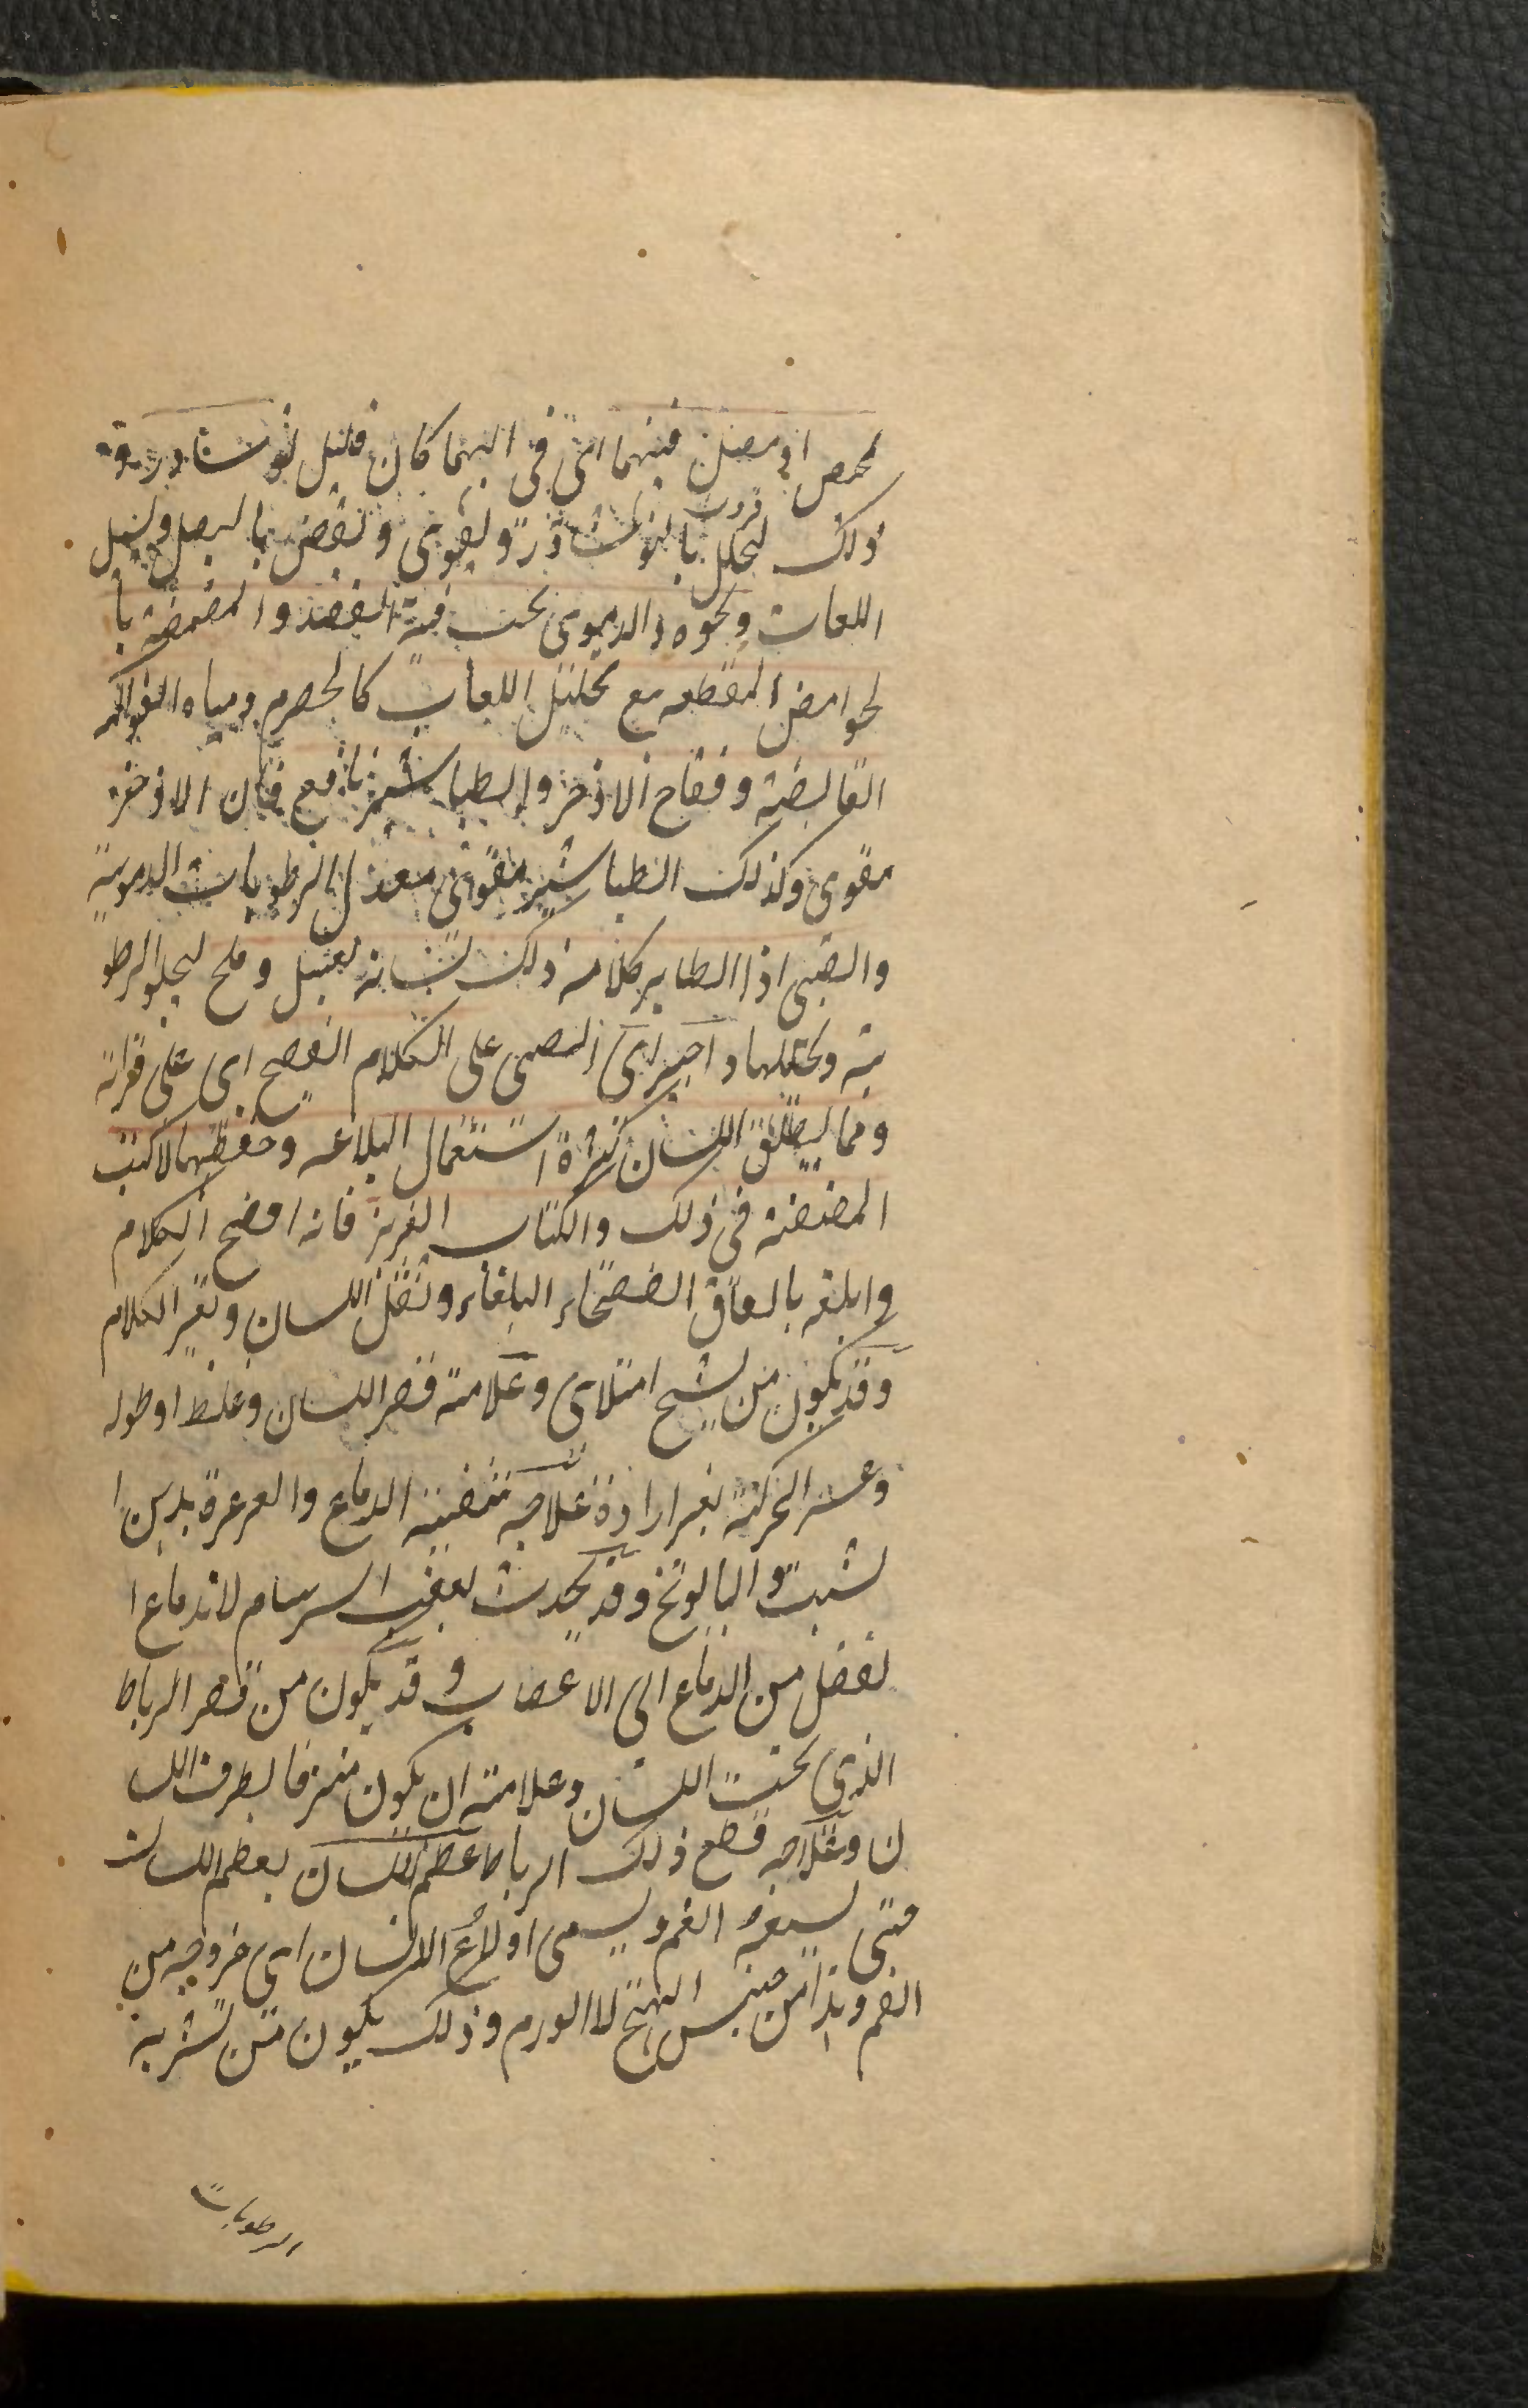 لمحمص او مصل فيهما اى فى ايهما كان قليل نوشادر وقه
ذلك ليحلل بالنوشادر ويقوى ويقبض بالبصل ويسيل
اللعاب ونحوه والدموى يجب فيه الفصد والمضمضة با
لحوامض المقطعه مع تحليل اللعاب كالحصرم ومياه الفواكه
القابضة وفقاح الاذخر والطباشير نافع فان الاذخر
مقوى وكذلك الطباشير مقوى معدل الرطوبات الدموية
والصبى اذا ابطا بر كلامه ذلك لسانه بعسل وملح ليجلو الرطو
بة ويحللها واجبر اى الصبى على الكلام الفصيح اى على قراته
ومما يطلق اللسان كثرة استعمال البلاغه وحفظها لاكتب
المصنفة فى ذلك والكتاب العزيز فانه افصح الكلام
وابلغه باتفاق الفصحاء البلغاء وثقل اللسان وتغير الكلام
وقد يكون من تشنج امتلاى وعلامته قصر اللسان وغلظ او طوله
وعسر الحركة بغير ارادة علاجه تنقية الدماغ والغرغرة بدهن ا
لشبت والبابونج وقد يحدث بعقب السرسام لاندفاع ا
لفضل من الدماغ الى الاعصاب وقد يكون من قصر الرباط
الذى تحت اللسان وعلامته ان يكون منزفا بطرف اللسا
ن وعلاجه قطع ذلك الرباط عظم اللسان يعظم اللسان
حتى لا يسعه الفم ويسمى اولاع اللسان اى خروجه من
الفم وهذا من جنس التهيج لا الورم وذلك يكون من تشربه
الرطوبات